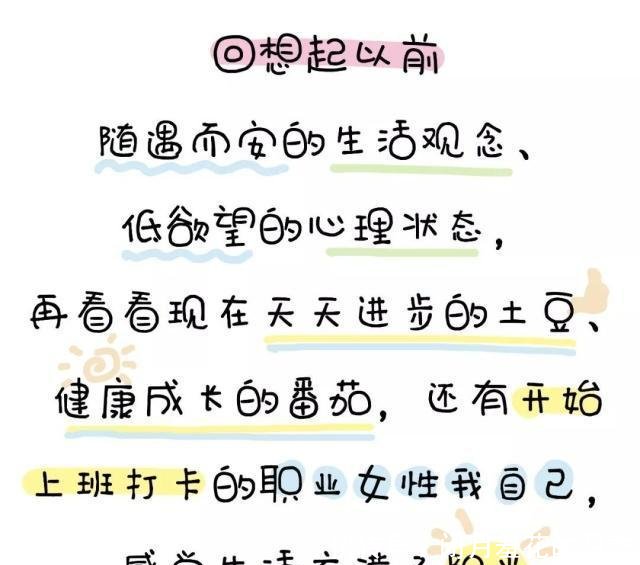 回想起以前
随遇而安的生活观念、
低欲望的心理状态，
再看看现在天天进步的土豆、
健康成长的番茄，还有开始
上班打卡的职业女性我自己，
感觉生活充满了